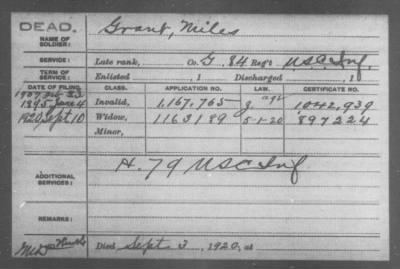 DEAD.
NAME OF SOLDIER:
Grant, Miles
SERVICE:
Late rank, Co. G, 84 Reg't U.S.C. Inf.
TERM OF SERVICE:
Enlisted , 1 Discharged , 1
DATE OF FILING. CLASS. APPLICATION NO. LAW. CERTIFICATE NO.
1907
1895 June 4 Invalid, 1,167,765 g age 1042,939
1920 Sept 10 Widow, 1163189 5-1-20 897224
Minor,
ADDITIONAL SERVICES:
H. 79 U.S.C. Inf
REMARKS:
Died Sept 3, 1920, at